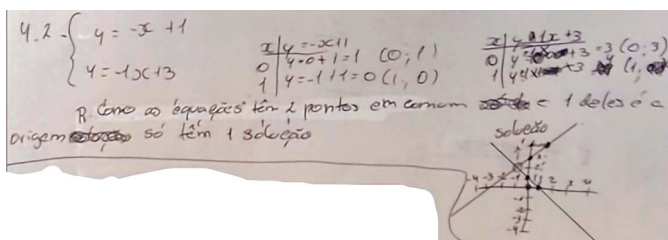 4.2- { y = -x +1
y = -1x+3
x | y = -x+1
0 | y=0+1=1 (0; 1)
1 | y=-1+1=0 (1, 0)
x | y 1x+3
0 | y +3 =3 (0; 3)
1 | +3 (1,
R Como as équações têm 2 pontos em comum e 1 deles é a
origem só têm 1 solução
solução
-4 -3 -2 -1 1 2
-1
-2
-3
-4